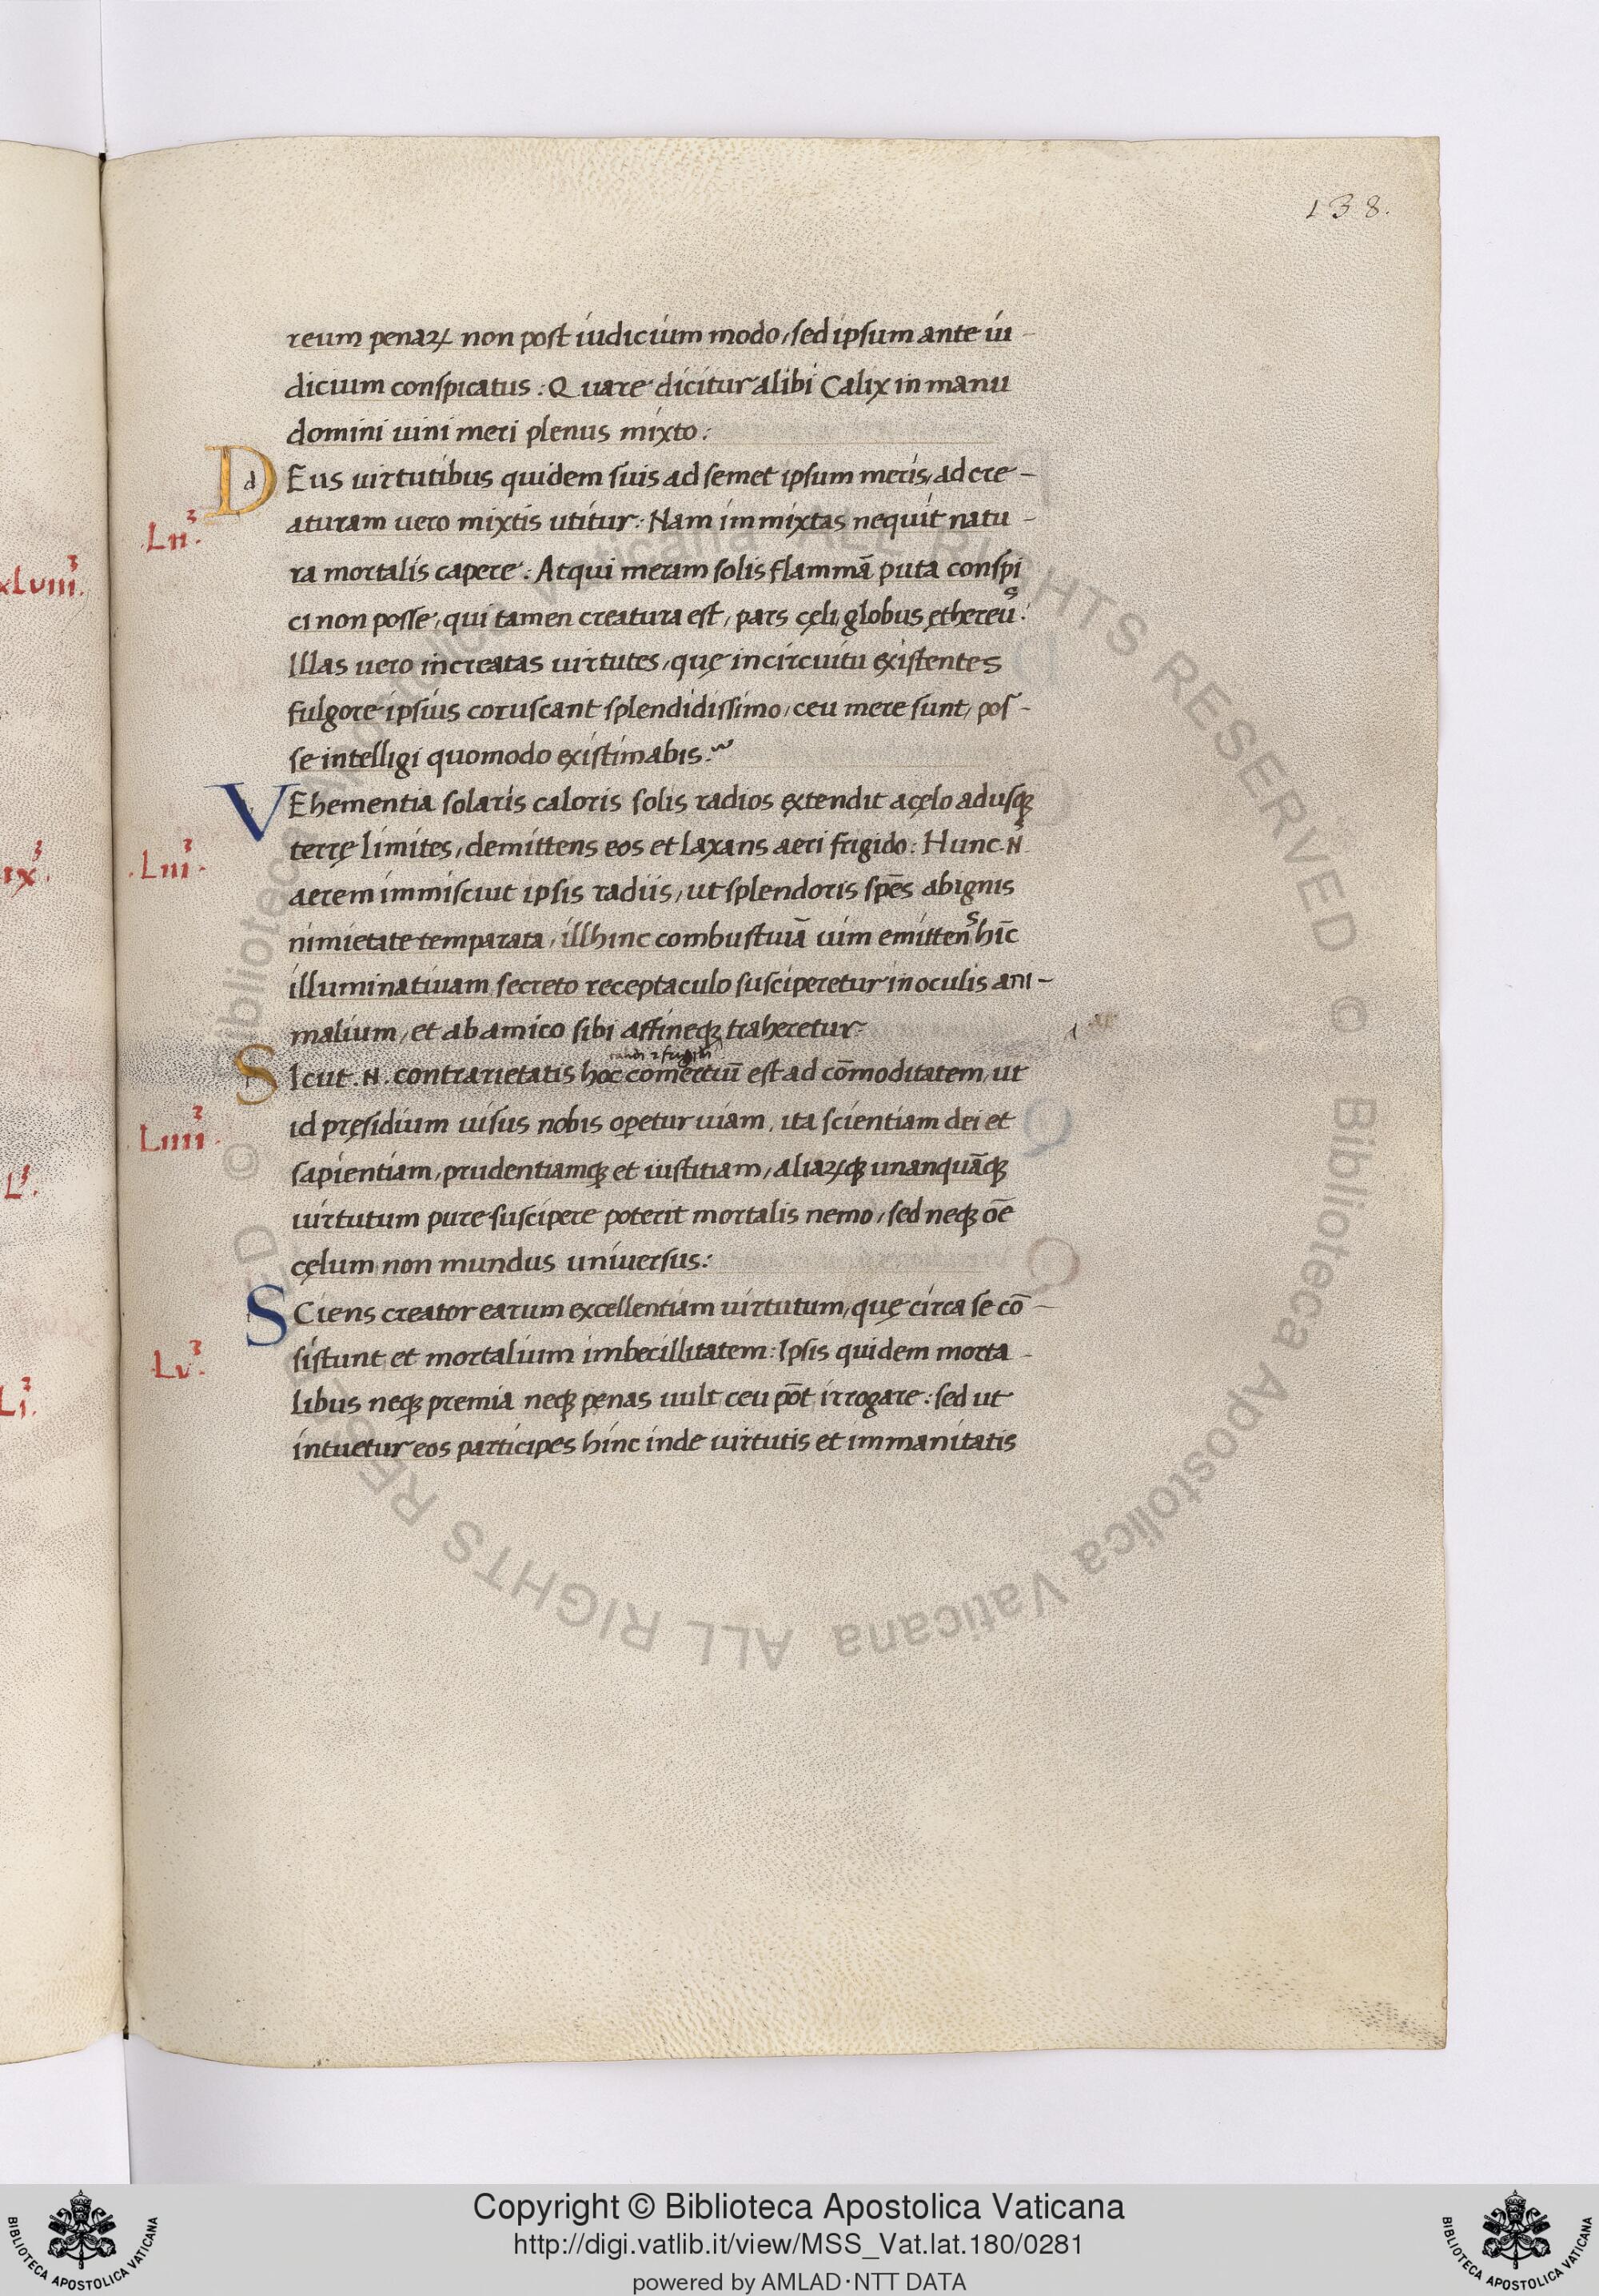 138.
reum penaꝝ non post iudicium modo, sed ipsum ante iu-
dicium conspicatus: Quare dicitur alibi Calix in manu
domini uini meri plenus mixto:
d
DEus uirtutibus quidem suis ad semet ipsum meris, ad cre-
Lii.³
aturam uero mixtis utitur: Nam immixtas nequit natu-
ra mortalis capere: Atqui meram solis flammā puta conspi
ci non posse, qui tamen creatura est, pars cęli, globus ęthereus:
Illas uero increatas uirtutes, quę in circuitu existentes
fulgore ipsius coruscant splendidissimo, ceu mere sunt, pos-
se intelligi quomodo existimabis:~
VEhementia solaris caloris solis radios extendit a cęlo adusqꝫ
Liii.³
terrę limites, demittens eos et laxans aeri frigido: Hunc .N.
aerem immisciut ipsis radiis, ut splendoris spēs ab ignis
nimietate temparata, illhinc combustuiā uim emittens hīc
illuminatiuam secreto receptaculo susciperetur in oculis ani-
malium, et ab amico sibi affineqꝫ traheretur:
SIcut .N. contrarietatis hoc comertiū est ad cōmoditatem, ut
Liiii.³
id pręsidium uisus nobis operetur uiam, ita scientiam dei et
sapientiam, prudentiamqꝫ et iustitiam, aliaꝝqꝫ unanquāqꝫ
uirtutum pure suscipere poterit mortalis nemo, sed neqꝫ oē
cęlum non mundus uniuersus:
SCiens creator earum excellentiam uirtutum, quę circa se cō-
Lv.³
sistunt et mortalium imbecillitatem: Ipsis quidem morta-
libus neqꝫ premia neqꝫ pęnas uult ceu pōt irrogare: sed ut
intuetur eos participes hinc inde uirtutis et immanitatis
xLviii.³
ix.³
L³.
Li.³
© Biblioteca Apostolica Vaticana ALL RIGHTS RESERVED © Biblioteca Apostolica Vaticana ALL RIGHTS RESERVED
Copyright © Biblioteca Apostolica Vaticana
http://digi.vatlib.it/view/MSS_Vat.lat.180/0281
powered by AMLAD·NTT DATA
BIBLIOTECA APOSTOLICA VATICANA
BIBLIOTECA APOSTOLICA VATICANA